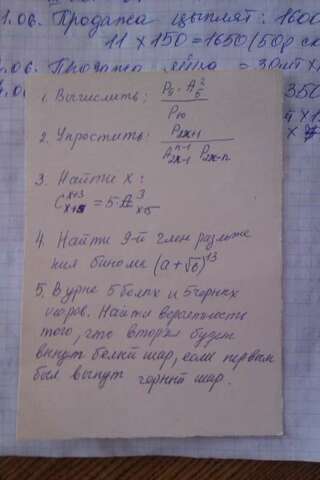 1.06. Продажа цыплят: 1600
11 × 150 = 1650 (50р
.06. = 30шт ×
350
1. Вычислить: P₉ · A₆² / P₁₀
2. Упростить: P₂ₓ₊₁ / A₂ₓ₋₁ⁿ⁻¹ P₂ₓ₋ₙ
3. Найти x:
Cₓ₊₈ˣ⁺³ = 5 A³ₓ₊₅
4. Найти 9-й член разложе
ния бинома (a + √6)¹³
5. В урне 5 белых и 5 черных
шаров. Найти вероятность
того, что вторым будет
вынут белый шар, если первым
был вынут черный шар.